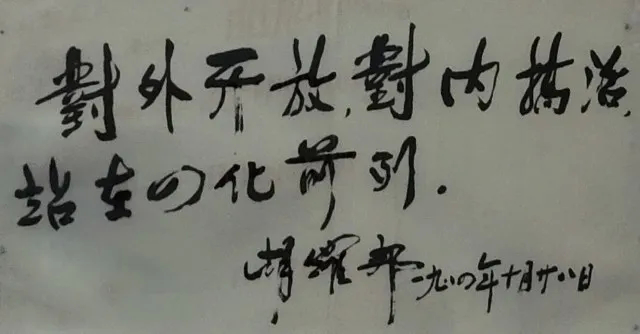 對外开放,對内搞活,
站在四化前列.
胡耀邦 一九八四年十月廿八日